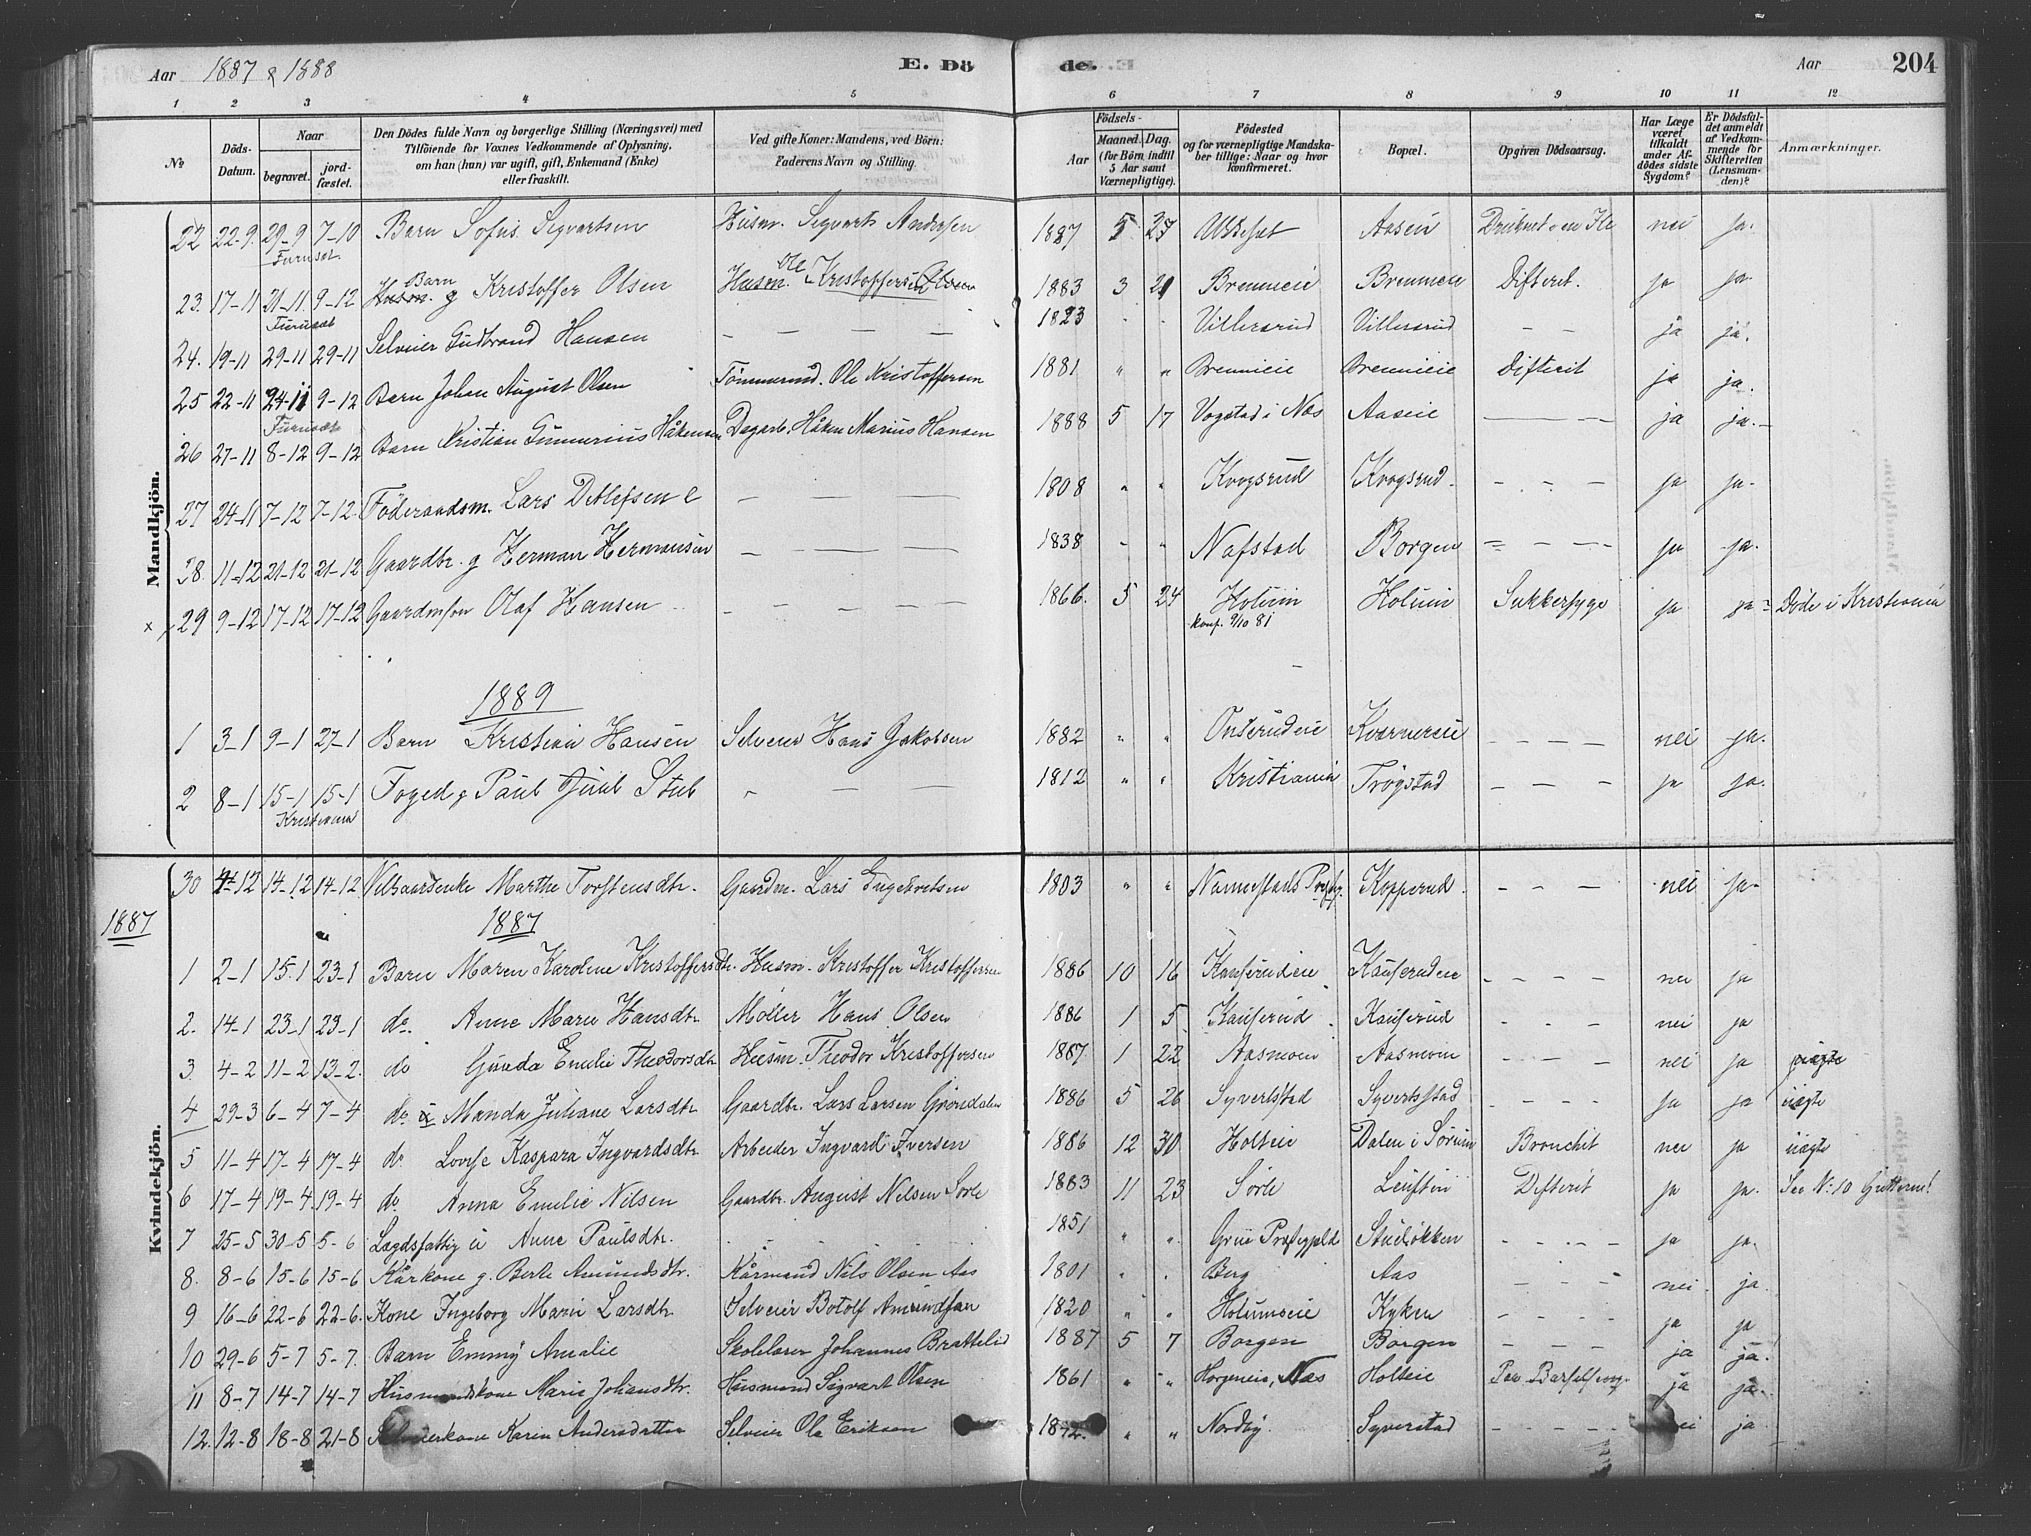 Aar 1887 & 1888 E. Dö de. Aar 204
1 2 3 4 5 6 7 8 9 10 11 12
No Döds-Datum. Naar begravet. jord-fæstet. Den Dödes fulde Navn og borgerlige Stilling (Næringsvei) med Tilföiende for Voxnes Vedkommende af Oplysning, om han (hun) var ugift, gift, Enkemand (Enke) eller fraskilt. Ved gifte Koner: Mandens, ved Börn: Faderens Navn og Stilling. Aar Födsels- Maaned Dag. (for Börn indtil 5 Aar samt Værnepligtige). Födested og for værnepligtige Mandskaber tillige: Naar og hvor konfirmeret. Bopæl. Opgiven Dödsaarsag. Har Læge været tilkaldt under Afdödes sidste Sygdom? Er Dödsfaldet anmeldt af Vedkommende for Skifteretten (Lensmanden)? Anmærkninger.
Mandkjön.
22 22-9 29-9 7-10 Barn Sofus Sigvartsen Husm. Sigvart Andersen 1887 5 27 Aasein Druknet en nei ja.
Furuset
23. 17-11 21-11 9-12 Barn Kristoffer Olsen Husm. Ole Kristoffersen 1883 3 21 Brennieie Brenneie Difterit. ja ja.
Furuset
24. 19-11 29-11 29-11 Selveier Gudbrand Hansen — — — — 1823 " " Villersrud Villersrud — — ja ja.
25 22-11 24-11 9-12 Barn Johan August Olsen Tömmermd. Ole Kristoffersen 1881 " " Brennieie Brennieie Difterit ja ja.
Furuset
26 27-11 8-12 9-12 Barn Kristian Gunnerius Håkensen Dagarb. Håken Marius Hansen 1888 5 17 Vogstad i Næs Aaseie — ja ja.
27 24-11 7-12 7-12. Föderaadsm. Lars Detlefsen e — — — — 1808 " " Krogsrud Krogsrud. - - - ja ja.
28. 11-12 21-12 21-12 Gaardbr. g Herman Hermansen — — — — 1838 - " Nafstad Borgen - - - ja ja.
x 29 9-12 17-12 17-12 Gaardmsön Olaf Hansen — — — — 1866. 5 24 Holum Holum Sukkersyge ja ja Döde i Kristiania
konf. 9/10 81
1889
1 3-1 9-1 27-1 Barn Kristian Hansen Selveier Hans Jakobsen 1882 " " Onsrudeie Kværnereie - - - - nei ja.
2 8-1 15-1 15-1 Foged g Paul Juul Stub " — — — 1812 " " Kristiania Trögstad - - - - ja ja.
Kristiania
Kvindekjön.
30 4-12 14-12 14-12. Vilkaarsenke Marthe Torstensdtr. Gaardm. Lars Ingebretsen 1803 " " Nannestads Præstgj. Kopperud. - - - nei ja.
1887 1887
1 2-1 15.1 23-1 Barn Maren Karoline Kristoffersdtr. Husm. Kristoffer Kristoffersen 1886 10 16 Kauserudeie Kauserudeie - - - - nei ja
2. 14-1 23-1 23-1 do. Anne Marie Hansdtr. Möller Hans Olsen 1886 1 5 Kauserud Kauserud - - - nei ja
3. 4-2 11-2 13-2. do Gunda Emilie Theodorsdtr Husm. Theodor Kristoffersen 1887 1 22 Aasmoen Aasmoen - - - nei ja uægte
4 29-3 6-4 7-4 do Manda Juliane Larsdtr Gaardbr. Lars Larsen Gröndalen 1886 5 26 Syverlstad Syvertsstad - - - - ja ja uægte
5 11-4 17-4 17-4 do Lovise Kaspara Ingvardsdtr Arbeider Ingvard Iversen 1886 12 30 Holteie Dalen i Sörum Bronchit nei ja uægte
6 17-4 19-4. 19-4 do. Anna Emilie Nilsen Gaardbr. August Nilsen Sörle 1883 11 23 Sörle Difterit ja ja. See N: 10 Gutterne!
7 25-5 30-5 5-6 Lægdsfattig Anne Paulsdtr. - - - 1851 " " Grue Præstegjeld Studlökken - - - - ja ja.
8. 8-6 15-6 15-6 Kårkone g. Berte Amundsdtr. Kårmand Nils Olsen Aas 1801 " . Berg Aas - - - - nei ja.
9 16-6 22-6 22-6. Kone Ingeborg Marie Larsdtr Selveier Botolf Amundsen 1820 " " Holumseie Kyken - - - - ja ja
10 29-6 5-7 5-7. Barn Emmy Amalie Skolelærer Johannes Brattelid 1887 5 7 Borgen Borgen - - - ja ja.
11 8-7 14-7 14-7 Husmandskone Marie Johansdtr. Husmand Sigvart Olsen 1861 " " Horgeneie, Næs Holteie ja ja.
12. 12-8 18-8 21-8 Selveierkone Karen Andersdatter Selveier Ole Eriksen " " Nordby. Syverstad - - - - nei ja